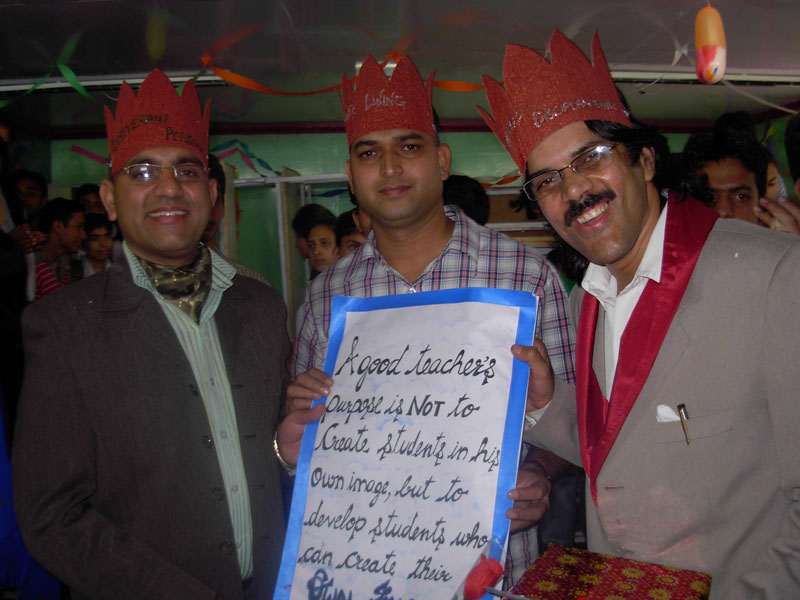 A good teacher's
purpose is NOT to
Create students in his
Own image, but to
develop students who
can create their
Own